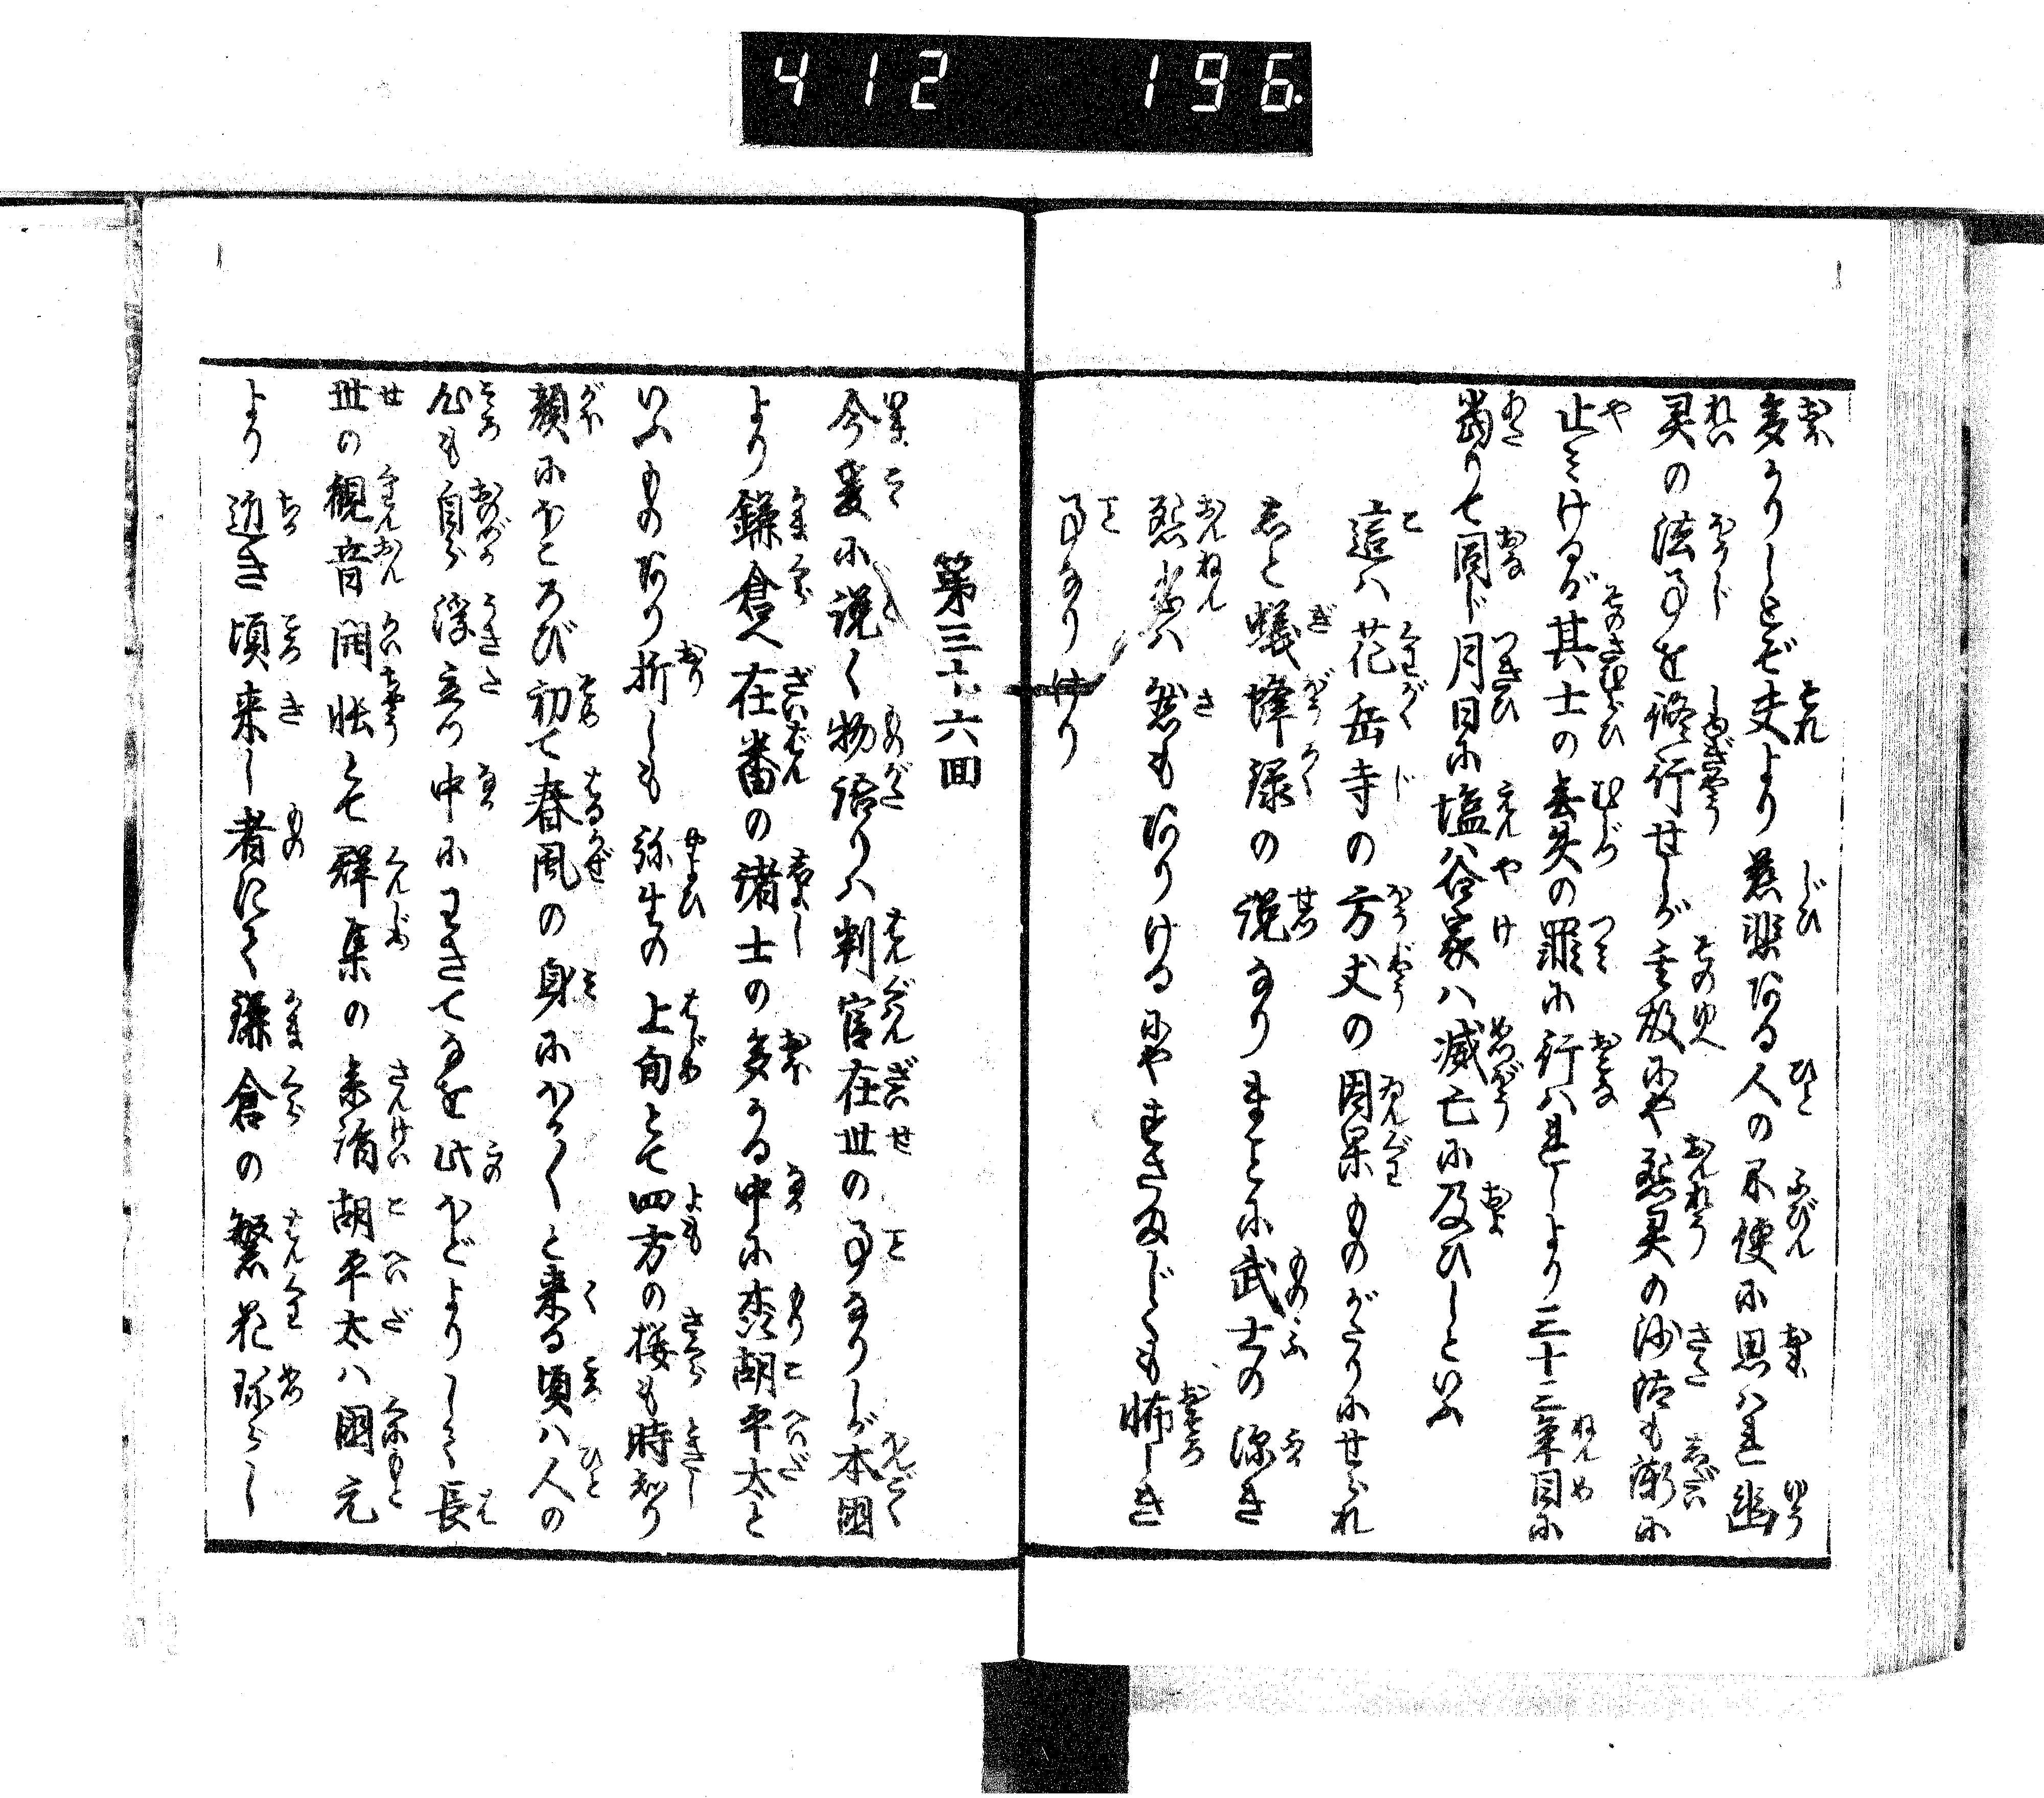 412 196.
多かりしとぞ夫より慈悲ある人の不便に思はれ幽
霊の法事を修行せしが其故にや怨霊の沙汰も漸に
止みけるが其士の無失の罪に行はれしより三十三年目に
当りて同じ月日に塩谷家は滅亡に及びしといふ
這は花岳寺の方丈の因果ものがたりにせられ
しと蟻蜂録の説なりまことに武士の深き
怨念は然もありけるにやすさまじくも怖しき
事なりけり
第三十六回
今爰に説く物語りは判官在世の事なりしが本国
より鎌倉へ在番の諸士の多かる中に森胡平太と
いふものあり折しも弥生の上旬とて四方の桜も時知り
顔にほころび初て春風の身にほか〱と来る頃は人の
心も自ら浮立つ中にわきてなを此ほどよりして長
世の観音開帳とて群集の参詣胡平太は国元
より近き頃来し者にて鎌倉の繁花珍らし